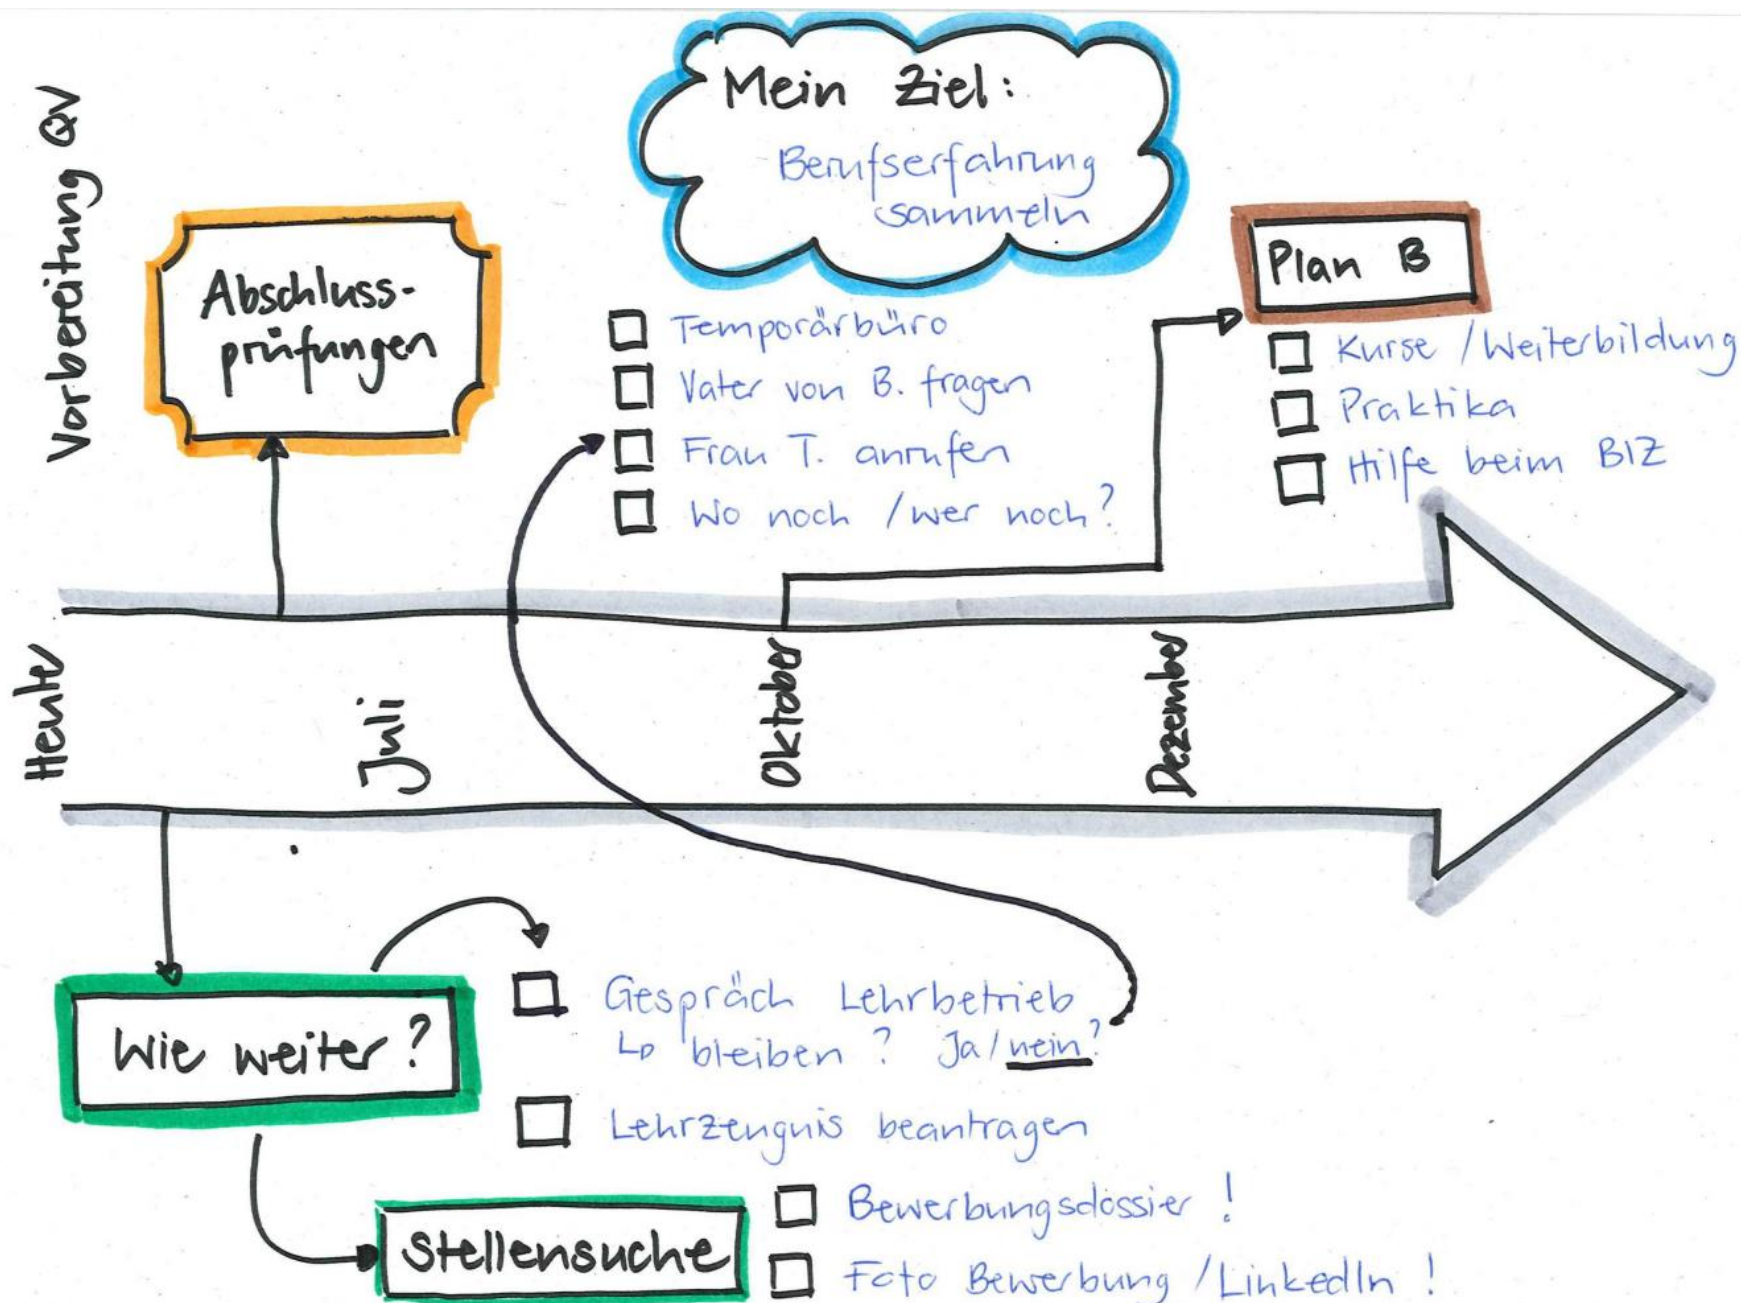 Vorbereitung QV
Mein Ziel:
Berufserfahrung
sammeln
Abschluss-
prüfungen
Temporärbüro
Vater von B. fragen
Frau T. anrufen
Wo noch / wer noch?
Plan B
Kurse / Weiterbildung
Praktika
Hilfe beim BIZ
Heute
Juli
Oktober
Dezember
Wie weiter?
Gespräch Lehrbetrieb
↳ bleiben? Ja / nein?
Lehrzeugnis beantragen
Stellensuche
Bewerbungsdossier!
Foto Bewerbung / LinkedIn!